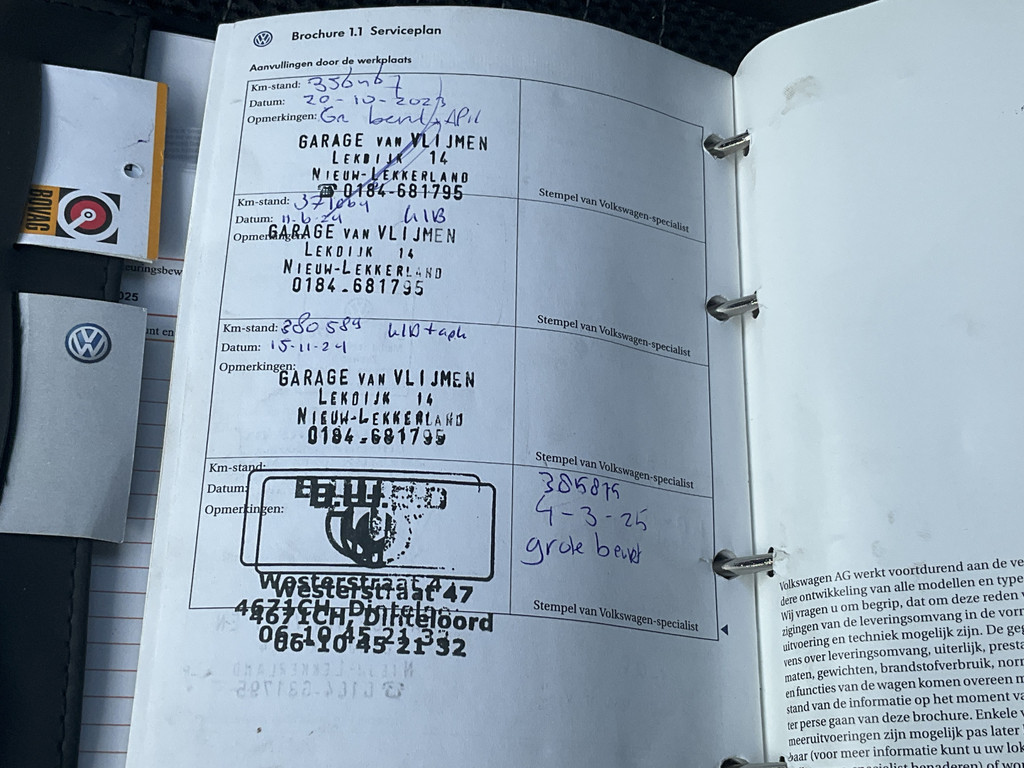 Brochure 1.1 Serviceplan
Aanvullingen door de werkplaats
Km-stand:
Datum: 20-10-2023
Opmerkingen: Gr beurt
GARAGE VAN VLIJMEN
LEKDIJK 14
NIEUW-LEKKERLAND
☎ 0184-681795
Stempel van Volkswagen-specialist
Km-stand:
Datum: 11-6-24
Opmerkingen:
GARAGE VAN VLIJMEN
LEKDIJK 14
NIEUW-LEKKERLAND
0184-681795
Stempel van Volkswagen-specialist
Km-stand: 380584
Datum: 15-11-24
Opmerkingen:
GARAGE VAN VLIJMEN
LEKDIJK 14
NIEUW-LEKKERLAND
0184-681795
Stempel van Volkswagen-specialist
Km-stand:
Datum:
Opmerkingen:
385875
4-3-25
grote beurt
Westerstraat 47
4671CH, Dinteloord
06-10 45 21 32
Stempel van Volkswagen-specialist
BOVAG
025
Volkswagen AG werkt voortdurend aan de
dere ontwikkeling van alle modellen en
Wij vragen u om begrip, dat om deze reden
zigingen van de leveringsomvang in de
uitvoering en techniek mogelijk zijn. De
vens over leveringsomvang, uiterlijk,
maten, gewichten, brandstofverbruik,
en functies van de wagen komen overeen
stand van de informatie op het moment
ter perse gaan van deze brochure. Enkele
meeruitvoeringen zijn mogelijk pas later
baar (voor meer informatie kunt u uw